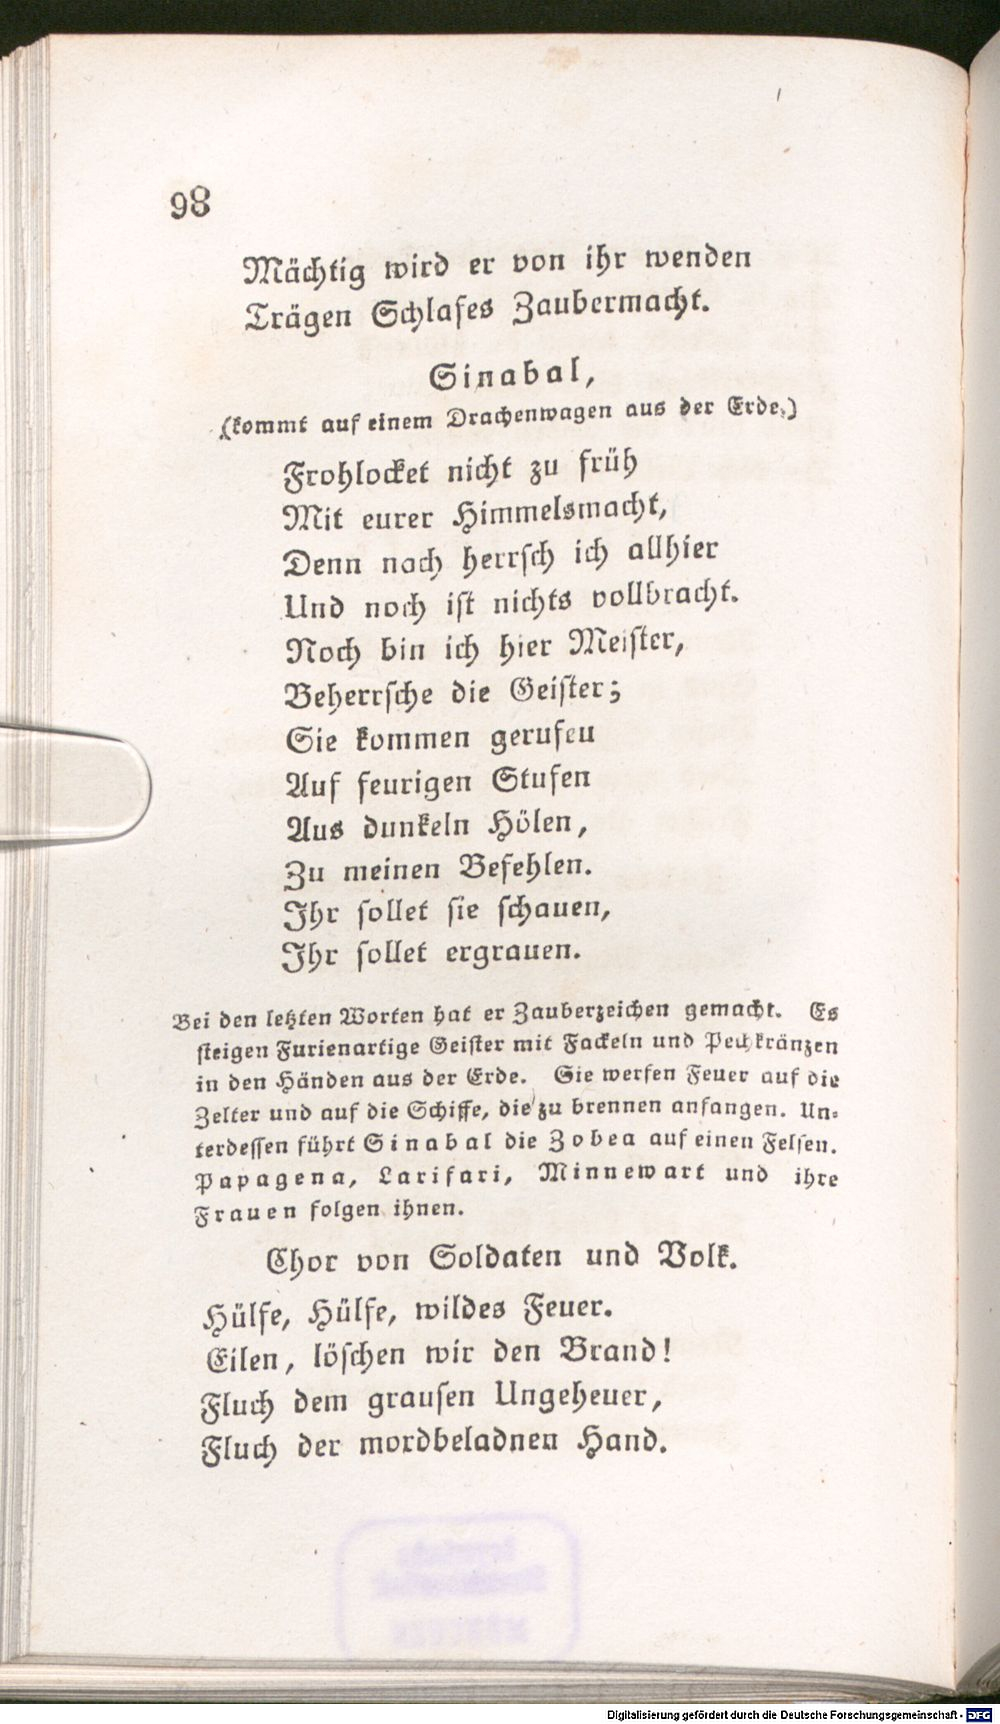 98
Mächtig wird er von ihr wenden
Trägen Schlafes Zaubermacht.
Sinabal,
(kommt auf einem Drachenwagen aus der Erde.)
Frohlocket nicht zu früh
Mit eurer Himmelsmacht,
Denn noch herrsch ich allhier
Und noch ist nichts vollbracht.
Noch bin ich hier Meister,
Beherrsche die Geister;
Sie kommen gerufen
Auf feurigen Stufen
Aus dunkeln Hölen,
Zu meinen Befehlen.
Ihr sollet sie schauen,
Ihr sollet ergrauen.
Bei den letzten Worten hat er Zauberzeichen gemacht. Es
steigen Furienartige Geister mit Fackeln und Pechkränzen
in den Händen aus der Erde. Sie werfen Feuer auf die
Zelter und auf die Schiffe, die zu brennen anfangen. Un-
terdessen führt Sinabal die Zobea auf einen Felsen.
Papagena, Larifari, Minnewart und ihre
Frauen folgen ihnen.
Chor von Soldaten und Volk.
Hülfe, Hülfe, wildes Feuer.
Eilen, löschen wir den Brand!
Fluch dem grausen Ungeheuer,
Fluch der mordbeladnen Hand.
Digitalisierung gefördert durch die Deutsche Forschungsgemeinschaft - DFG